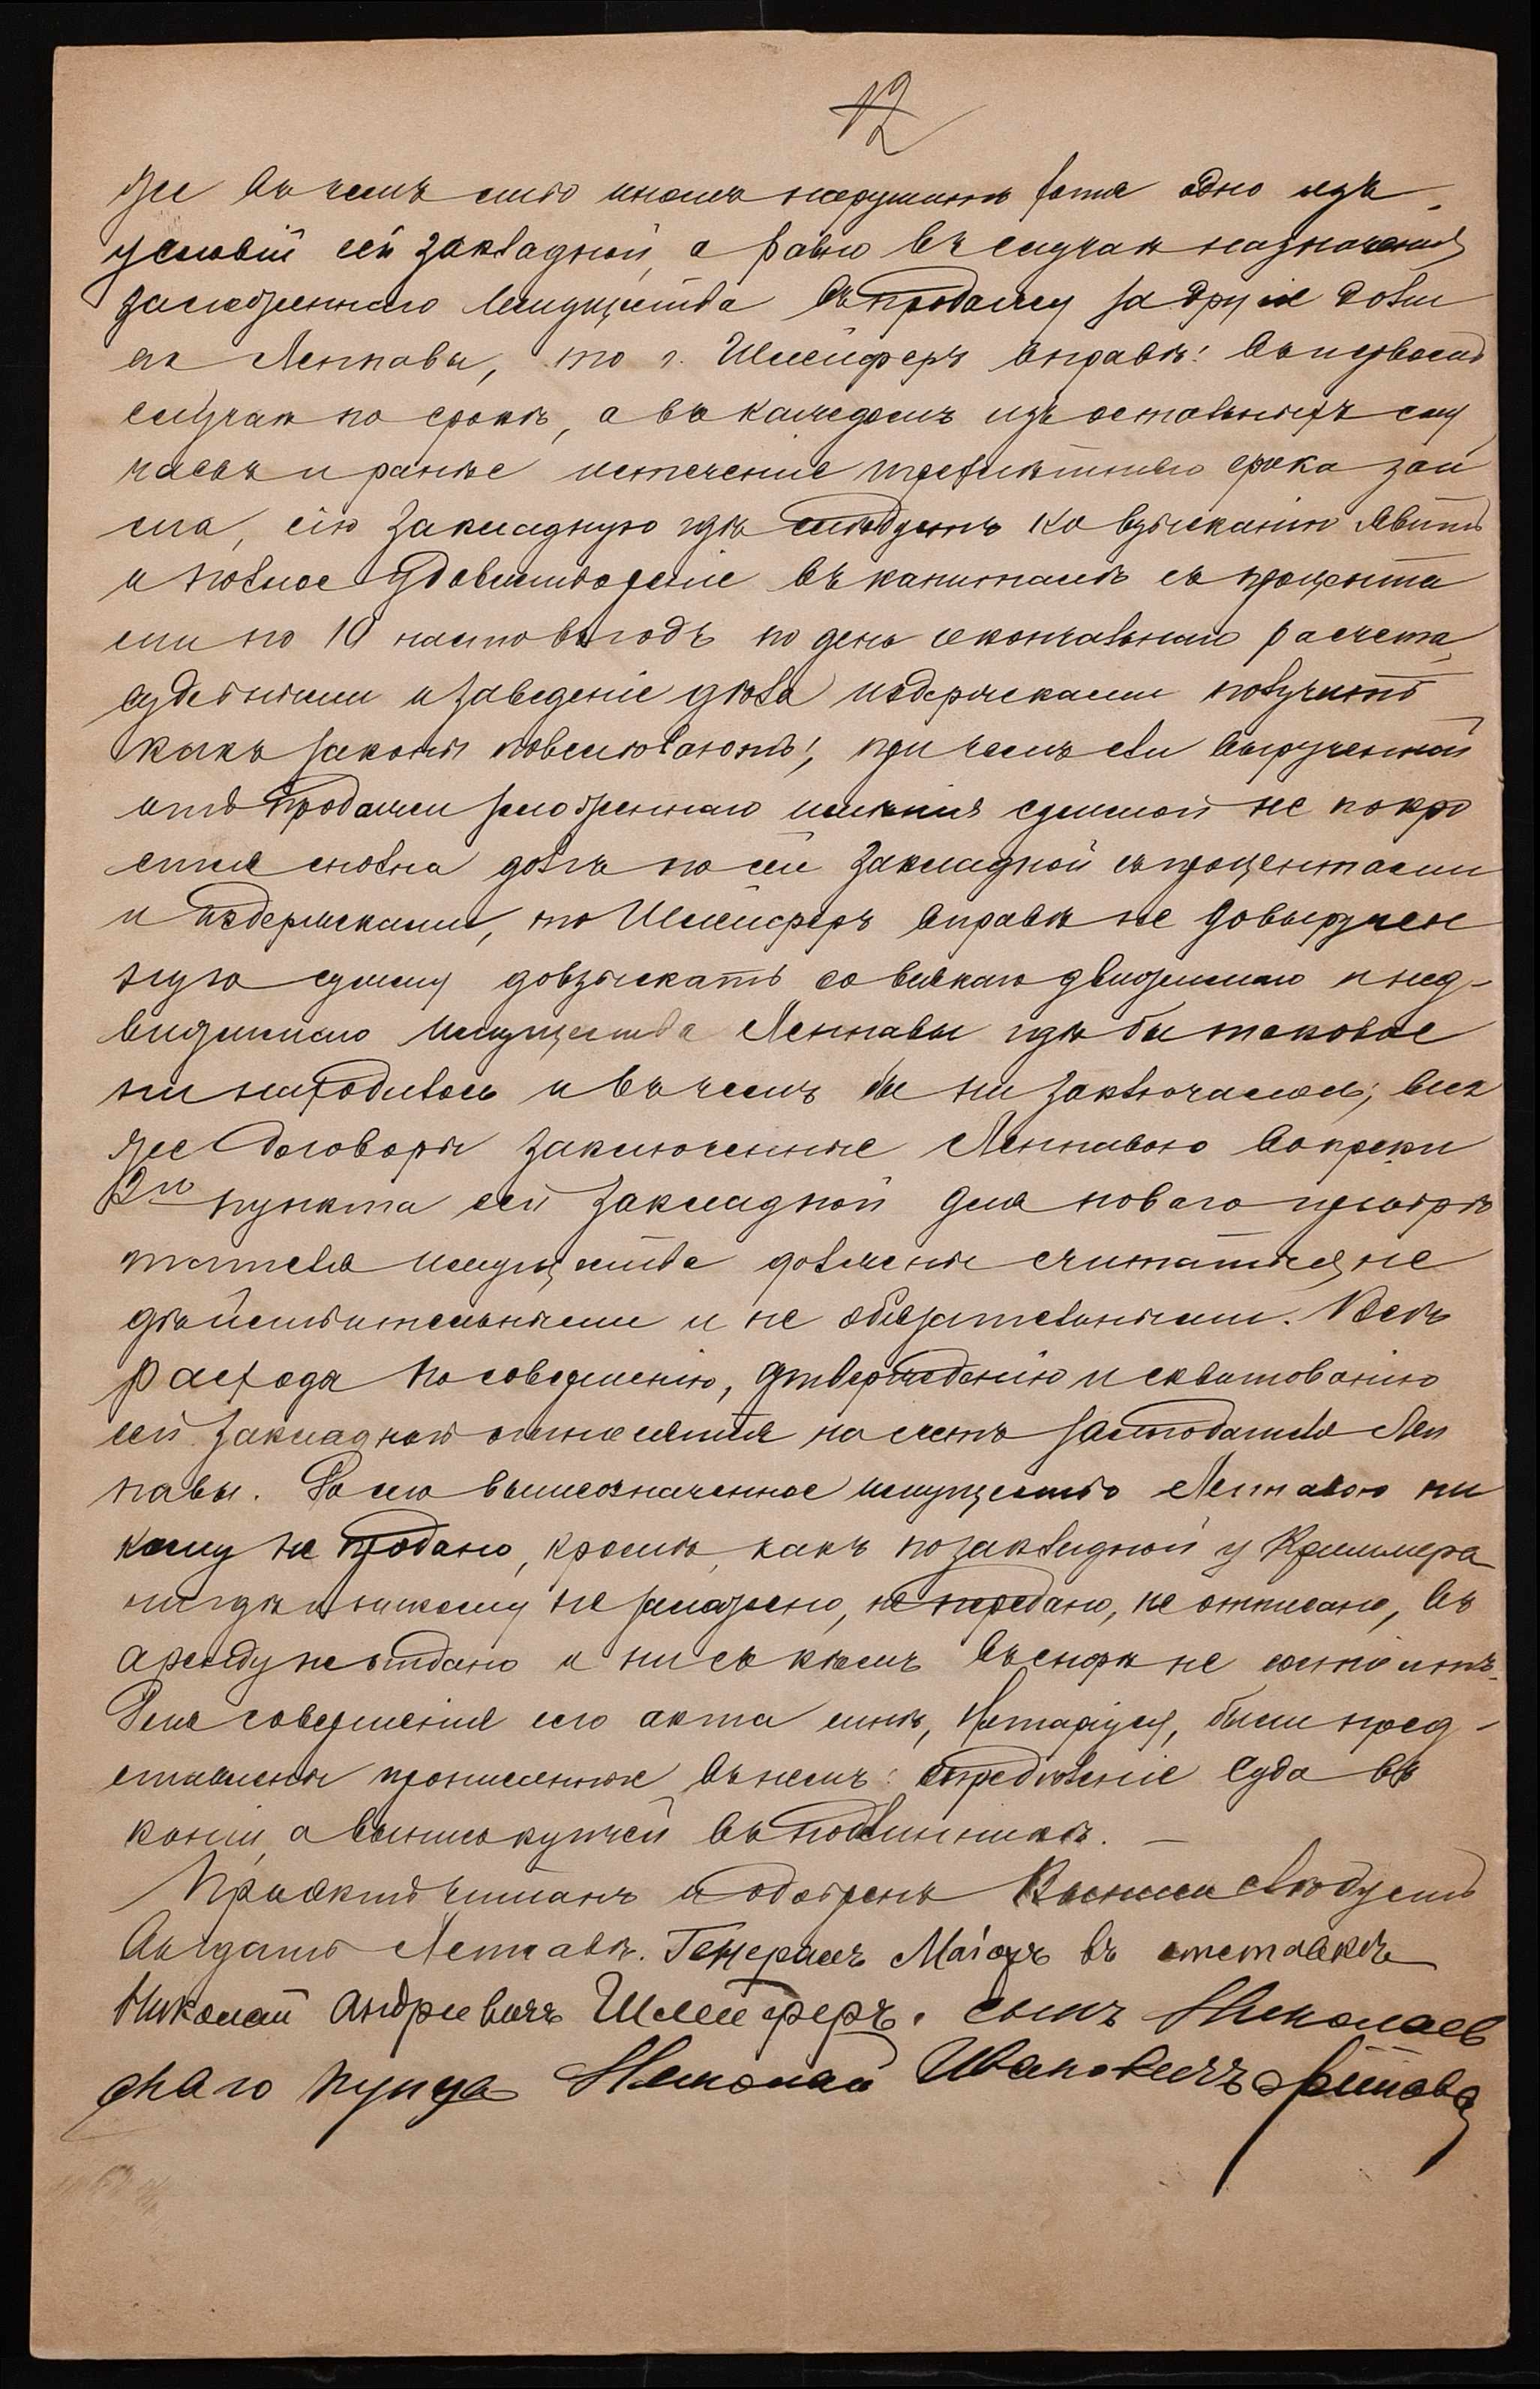 12
же въ чемъ либо иномъ нарушитъ хотя одно изъ
условій сей закладной, а равно въ случаѣ назначенія
заложеннаго имущества въ продажу за другіе долги
его Леппавы, то г. Шлейферъ вправѣ: въ первомъ
случаѣ по срокѣ, а въ каждомъ изъ остальныхъ слу
чаевъ и ранѣе истеченія трехлѣтняго срока зай
ма, сію закладную гдѣ слѣдуетъ ко взысканію явить
и полное удовлетвореніе въ капиталѣ съ процента
ми по 10 на сто въ годъ по день окончательнаго расчета,
судебными и за веденіе дѣла издержками получить
какъ законы повелѣваютъ; при чемъ если вырученной
отъ продажи заложеннаго имѣнія суммой не покро
ется сполна долгъ по сей закладной съ процентами
и издержками, то Шлейферъ вправѣ не довыручен
ную сумму довзыскать со всякаго движимаго и нед-
вижимаго имущества Леппавы гдѣ бы таковое
ни находилось и въ чемъ бы ни заключалось; всѣ
же договоры заключенные Леппавою вопреки
2го пункта сей закладной для новаго пріобрѣ
тателя имущества должны считаться не
дѣйствительными и не обязательными. Всѣ
расходы по совершенію, утвержденію и сквитованію
сей закладной относятся на счетъ залогодателя Леп
павы. До сего вышеозначенное имущество Леппавою ни
кому не продано, кромѣ, какъ по закладной у Криммера
нигдѣ и никому не заложено, не передано, не отписано, въ
аренду не отдано и ни съ кѣмъ въ спорѣ не состоитъ.
Для совершенія сего акта мнѣ, Нотаріусу, были пред-
ставлены прописанные въ немъ: опредѣленіе Суда въ
копіи, а выпись купчей въ подлинникѣ. —
Проэктъ читанъ и одобренъ Выпись слѣдуетъ
выдать Леппавѣ. Генералъ Маіоръ въ отставкѣ
Николай Андреевичъ Шлейферъ. сынъ Николаев
скаго купца Николай Ивановичъ